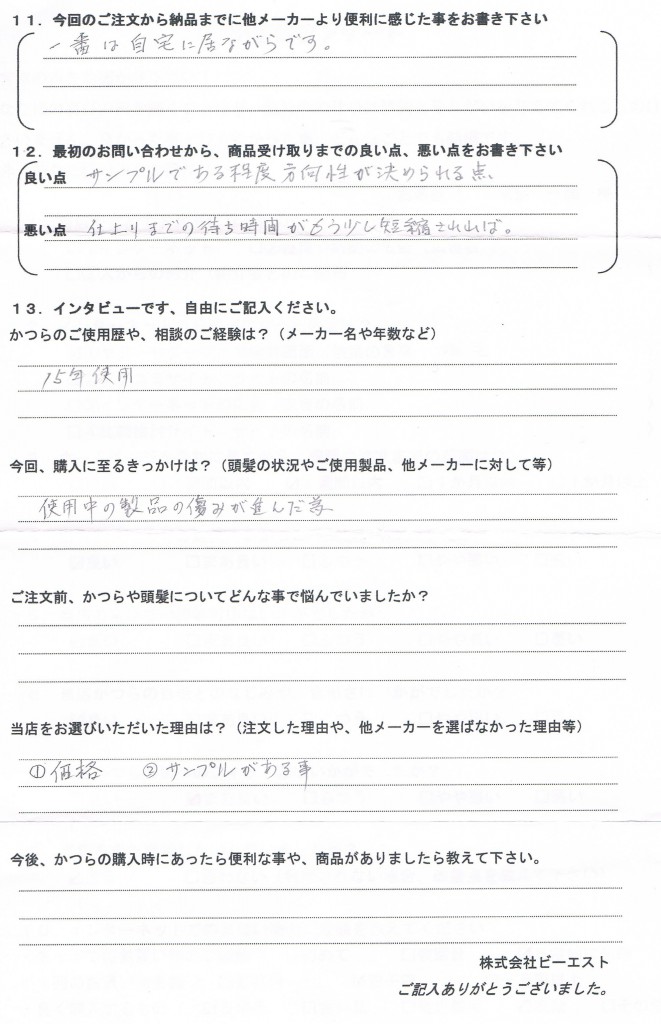 １１．今回のご注文から納品までに他メーカーより便利に感じた事をお書き下さい
一番は自宅に居ながらです。
１２．最初のお問い合わせから、商品受け取りまでの良い点、悪い点をお書き下さい
良い点 サンプルである程度方向性が決められる点、
悪い点 仕上りまでの待ち時間がもう少し短縮されれば。
１３．インタビューです、自由にご記入ください。
かつらのご使用歴や、相談のご経験は？（メーカー名や年数など）
15年使用
今回、購入に至るきっかけは？（頭髪の状況やご使用製品、他メーカーに対して等）
使用中の製品の傷みが進んだ為
ご注文前、かつらや頭髪についてどんな事で悩んでいましたか？
当店をお選びいただいた理由は？（注文した理由や、他メーカーを選ばなかった理由等）
①価格 ②サンプルがある事
今後、かつらの購入時にあったら便利な事や、商品がありましたら教えて下さい。
株式会社ビーエスト
ご記入ありがとうございました。